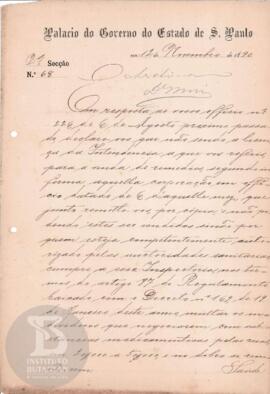 Palacio do Governo do Estado de S. Paulo
em 12 de Novembro de 1890
2ª Secção
N.º 68
Archive-se
Em resposta ao vosso officio nº
226 de 6 de Agosto proximo passa-
do declaro vos que não sendo a licença
da Intendencia, a que vos referis,
para a venda de remedios segundo in-
forma aquella corporação em offi-
cio datado de 6 d'aquelle mez, que
junto remetto vos por cópia, e não po-
dendo estes ser vendidos senão por
quem esteja competentemente auto-
rizado pelas autoridades sanitarias
cumpre a essa Inspectoria, nos ter-
mos do artigo 77 do Regulamento
baixado com o Decreto nº 169 de 18
de Janeiro deste anno multar os in-
dividuos que negociarem com sub-
stancias medicamentosas pela
Saude
INSTITUTO
BUTANTAN